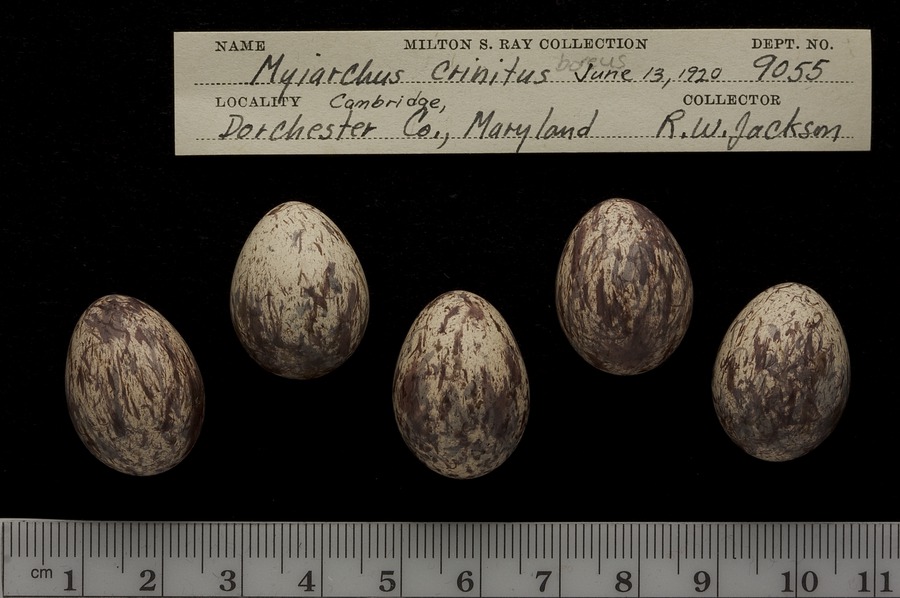 NAME MILTON S. RAY COLLECTION DEPT. NO.
Myiarchus crinitus boreus June 13, 1920 9055
LOCALITY Cambridge, COLLECTOR
Dorchester Co., Maryland R.W. Jackson
cm 1 2 3 4 5 6 7 8 9 10 11